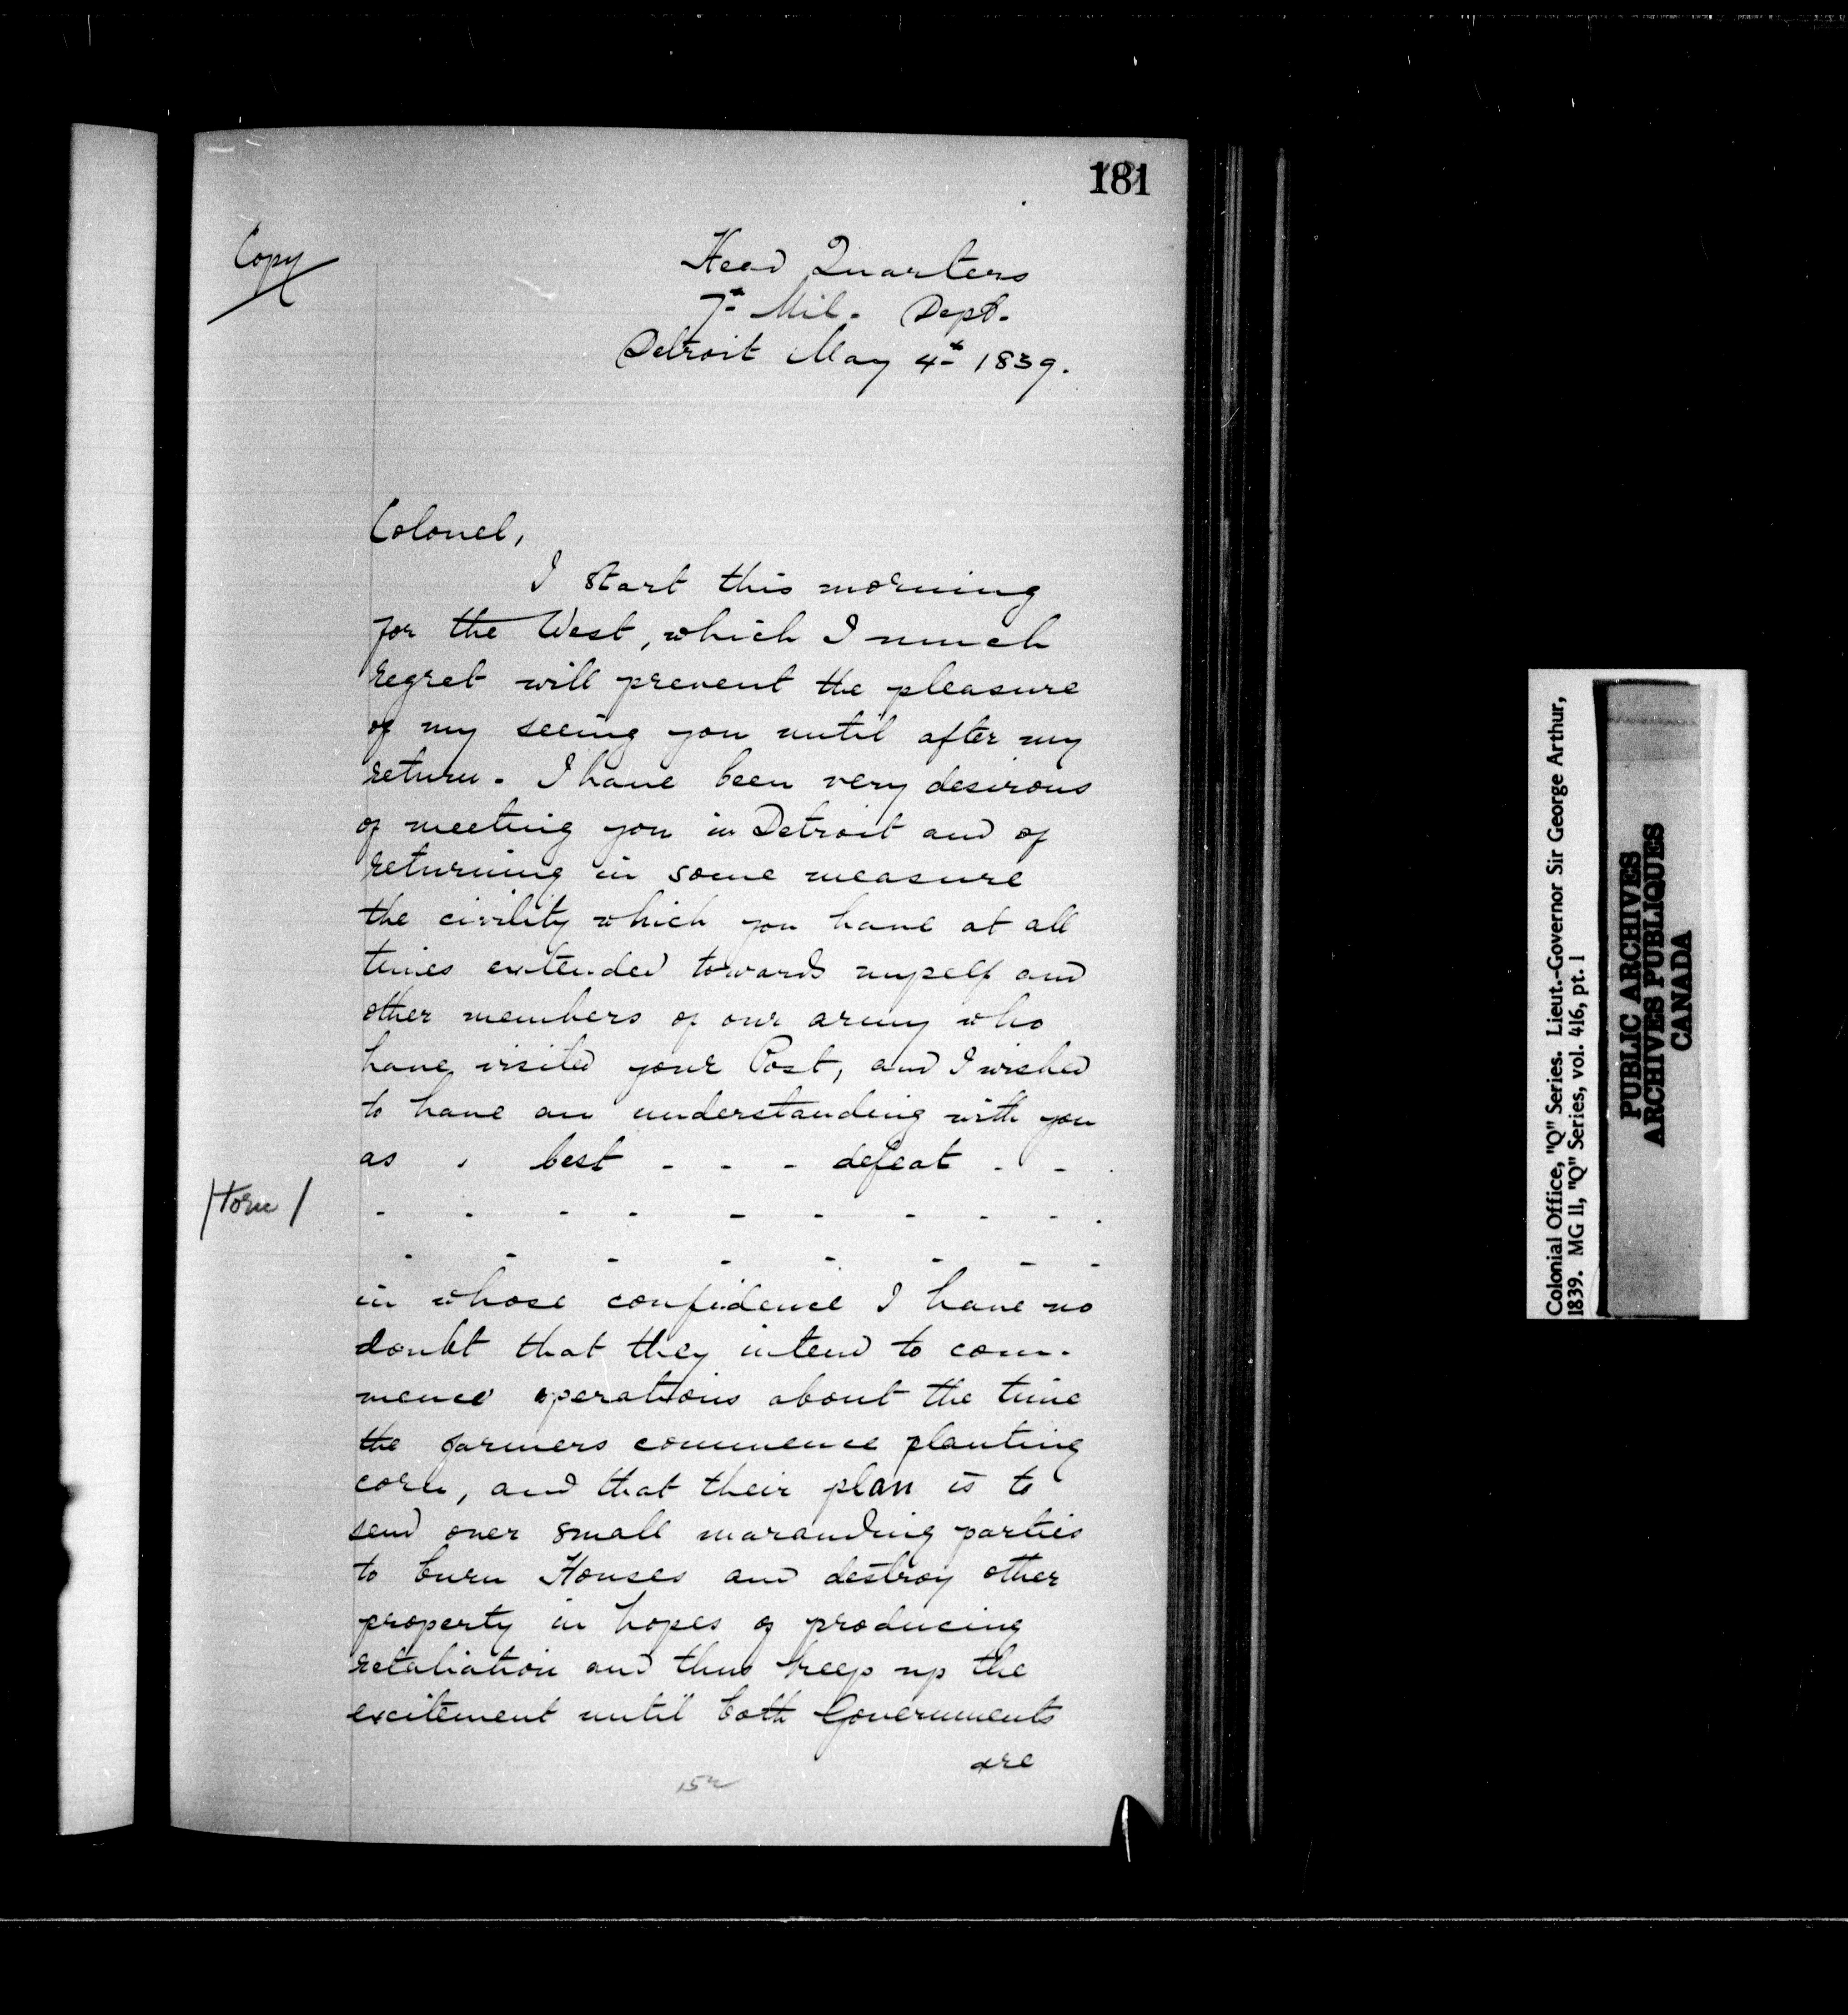 181
Copy
Head Quarters
7th Mil. Dept.
Detroit May 4th 1839.
Colonel,
I start this morning
for the West, which I much
regret will prevent the pleasure
of my seeing you until after my
return. I have been very desirous
of meeting you in Detroit and of
returning in some measure
the civility which you have at all
times extended towards myself and
other members of our army who
have visited your Post, and I wished
to have an understanding with you
as - best - - - defeat - -
/torn/ - - - - - - - - - -
- - - - - - - -
in whose confidence I have no
doubt that they intend to com-
mence operations about the time
the farmers commence planting
corn, and that their plan is to
send over small marauding parties
to burn Houses and destroy other
property in hopes of producing
retaliation and thus keep up the
excitement until both Governments
are
152
Colonial Office, "Q" Series. Lieut.-Governor Sir George Arthur,
1839. MG 11, "Q" Series, vol. 416, pt. 1
PUBLIC ARCHIVES
ARCHIVES PUBLIQUES
CANADA